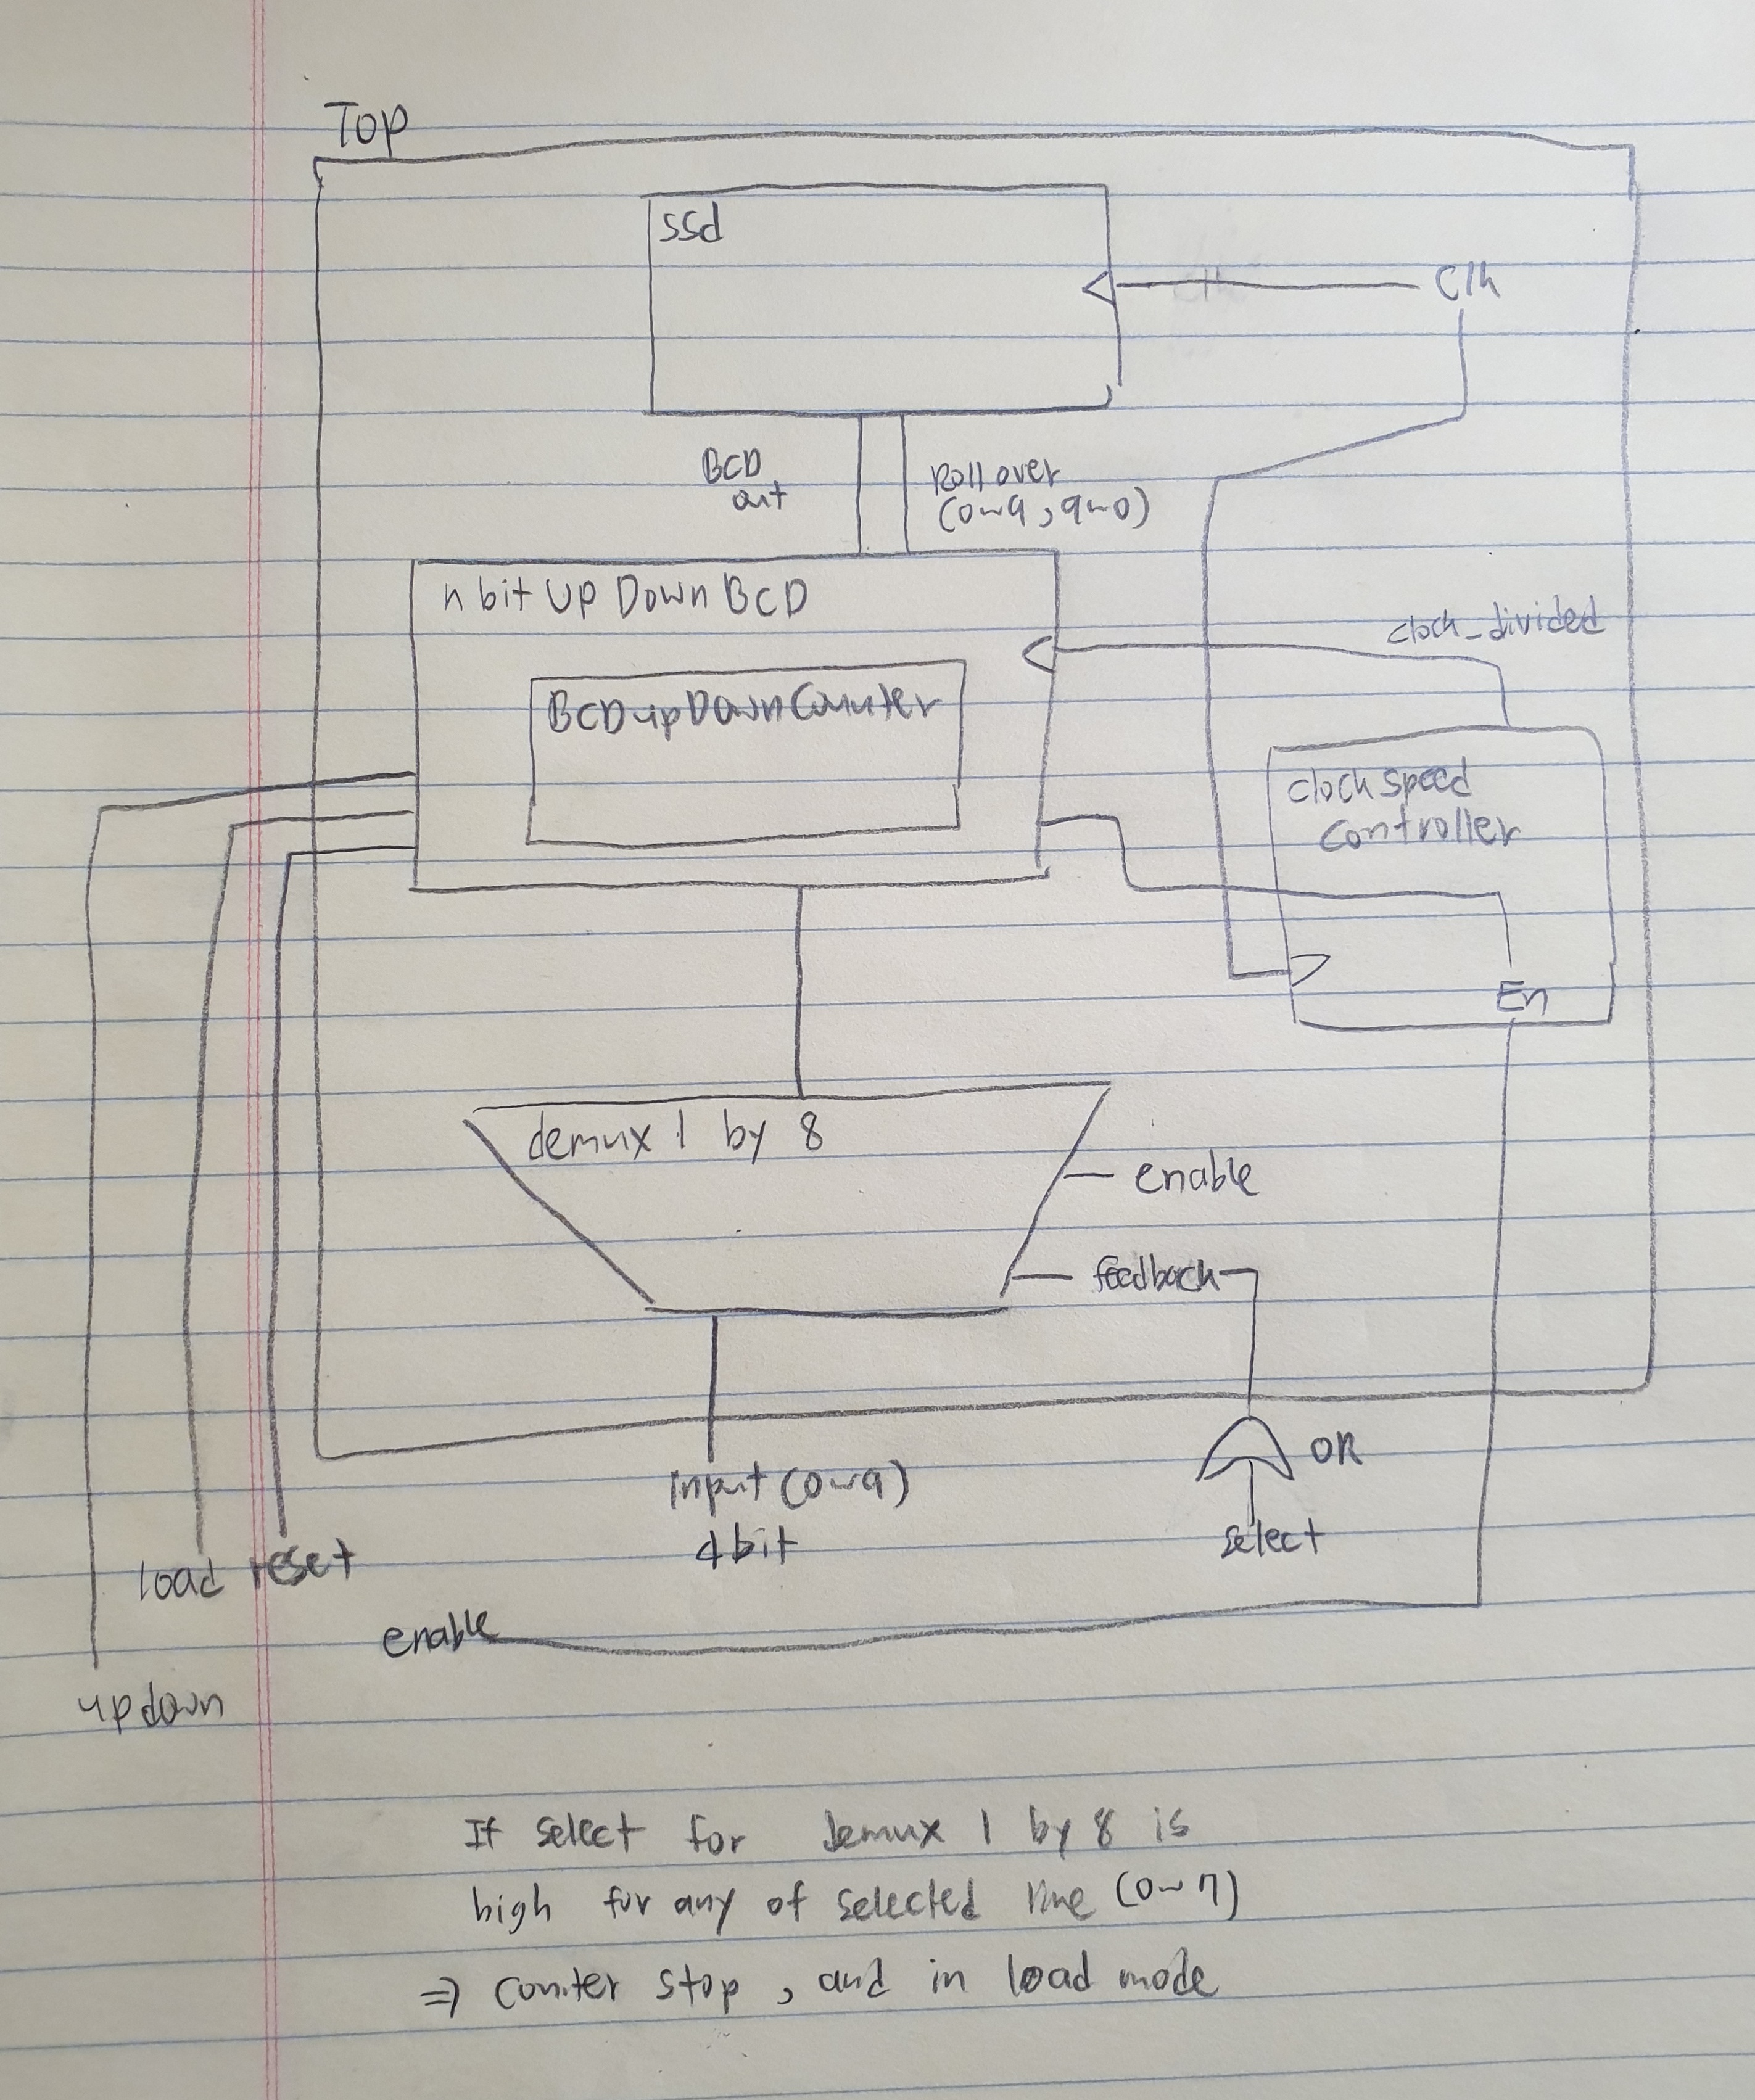 Top
ssd
Clk
BCD
out
Roll over
(0~9, 9~0)
n bit Up Down BCD
clock_divided
BCD up Down Counter
clock speed
controller
En
demux 1 by 8
enable
feedback
OR
input (0~9)
4 bit
select
load reset
enable
updown
If select for demux 1 by 8 is
high for any of selected line (0~7)
⇒ counter stop, and in load mode